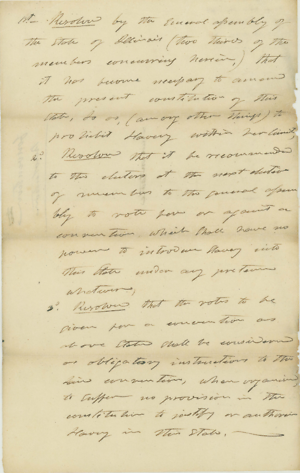 1st Resolved by the General Assembly of
the State of Illinois (two thirds of the
members concurring herein,) that
it has become necessary to amend
the present constitution of this
State, so as, (among other things) to
prohibit Slavery within her limits,
2. Resolved that it be recommended
to the electors at the next election
of members to the general assem
bly to vote for or against a
convention, which shall have no
power to introduce slavery into
this State under any pretence
whatever,
3. Resolved that the votes to be
given for a convention as
above stated shall be considered
as obligatory instructions to the
convention, when organized,
to suffer no provision in the
constitution to justify or authorise
Slavery in this State.